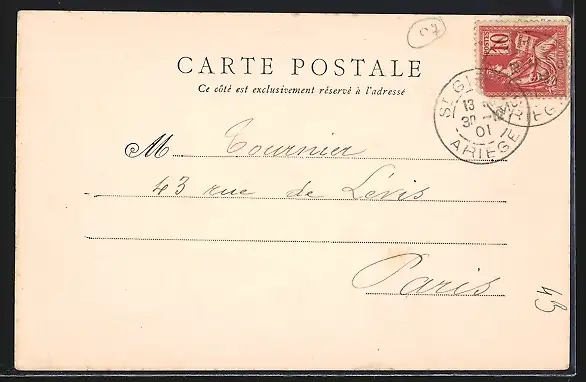 07
CARTE POSTALE
Ce côté est exclusivement réservé à l'adresse
10
ST GI
13
30
01
ARIÈGE
M Tournier
43 rue de Lévis
Paris
43